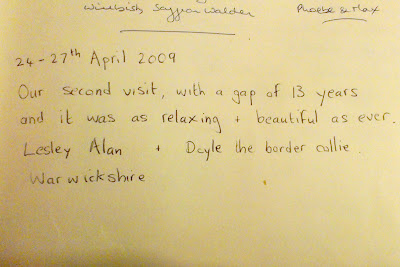 Wimbish Saffron Walden Phoebe & Max
24 - 27th April 2009
Our second visit, with a gap of 13 years
and it was as relaxing + beautiful as ever.
Lesley Alan + Doyle the border collie.
Warwickshire